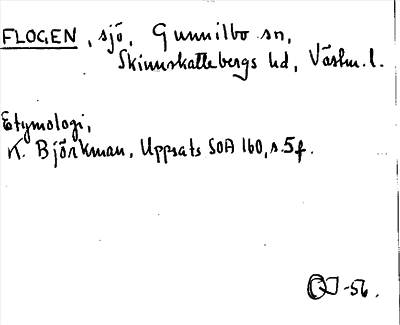 FLOGEN, sjö, Gunnilbo sn,
Skinnskattebergs hd, Västm. l.
Etymologi,
K. Björkman, Uppsats SOA 160, s. 5 f.
-56.